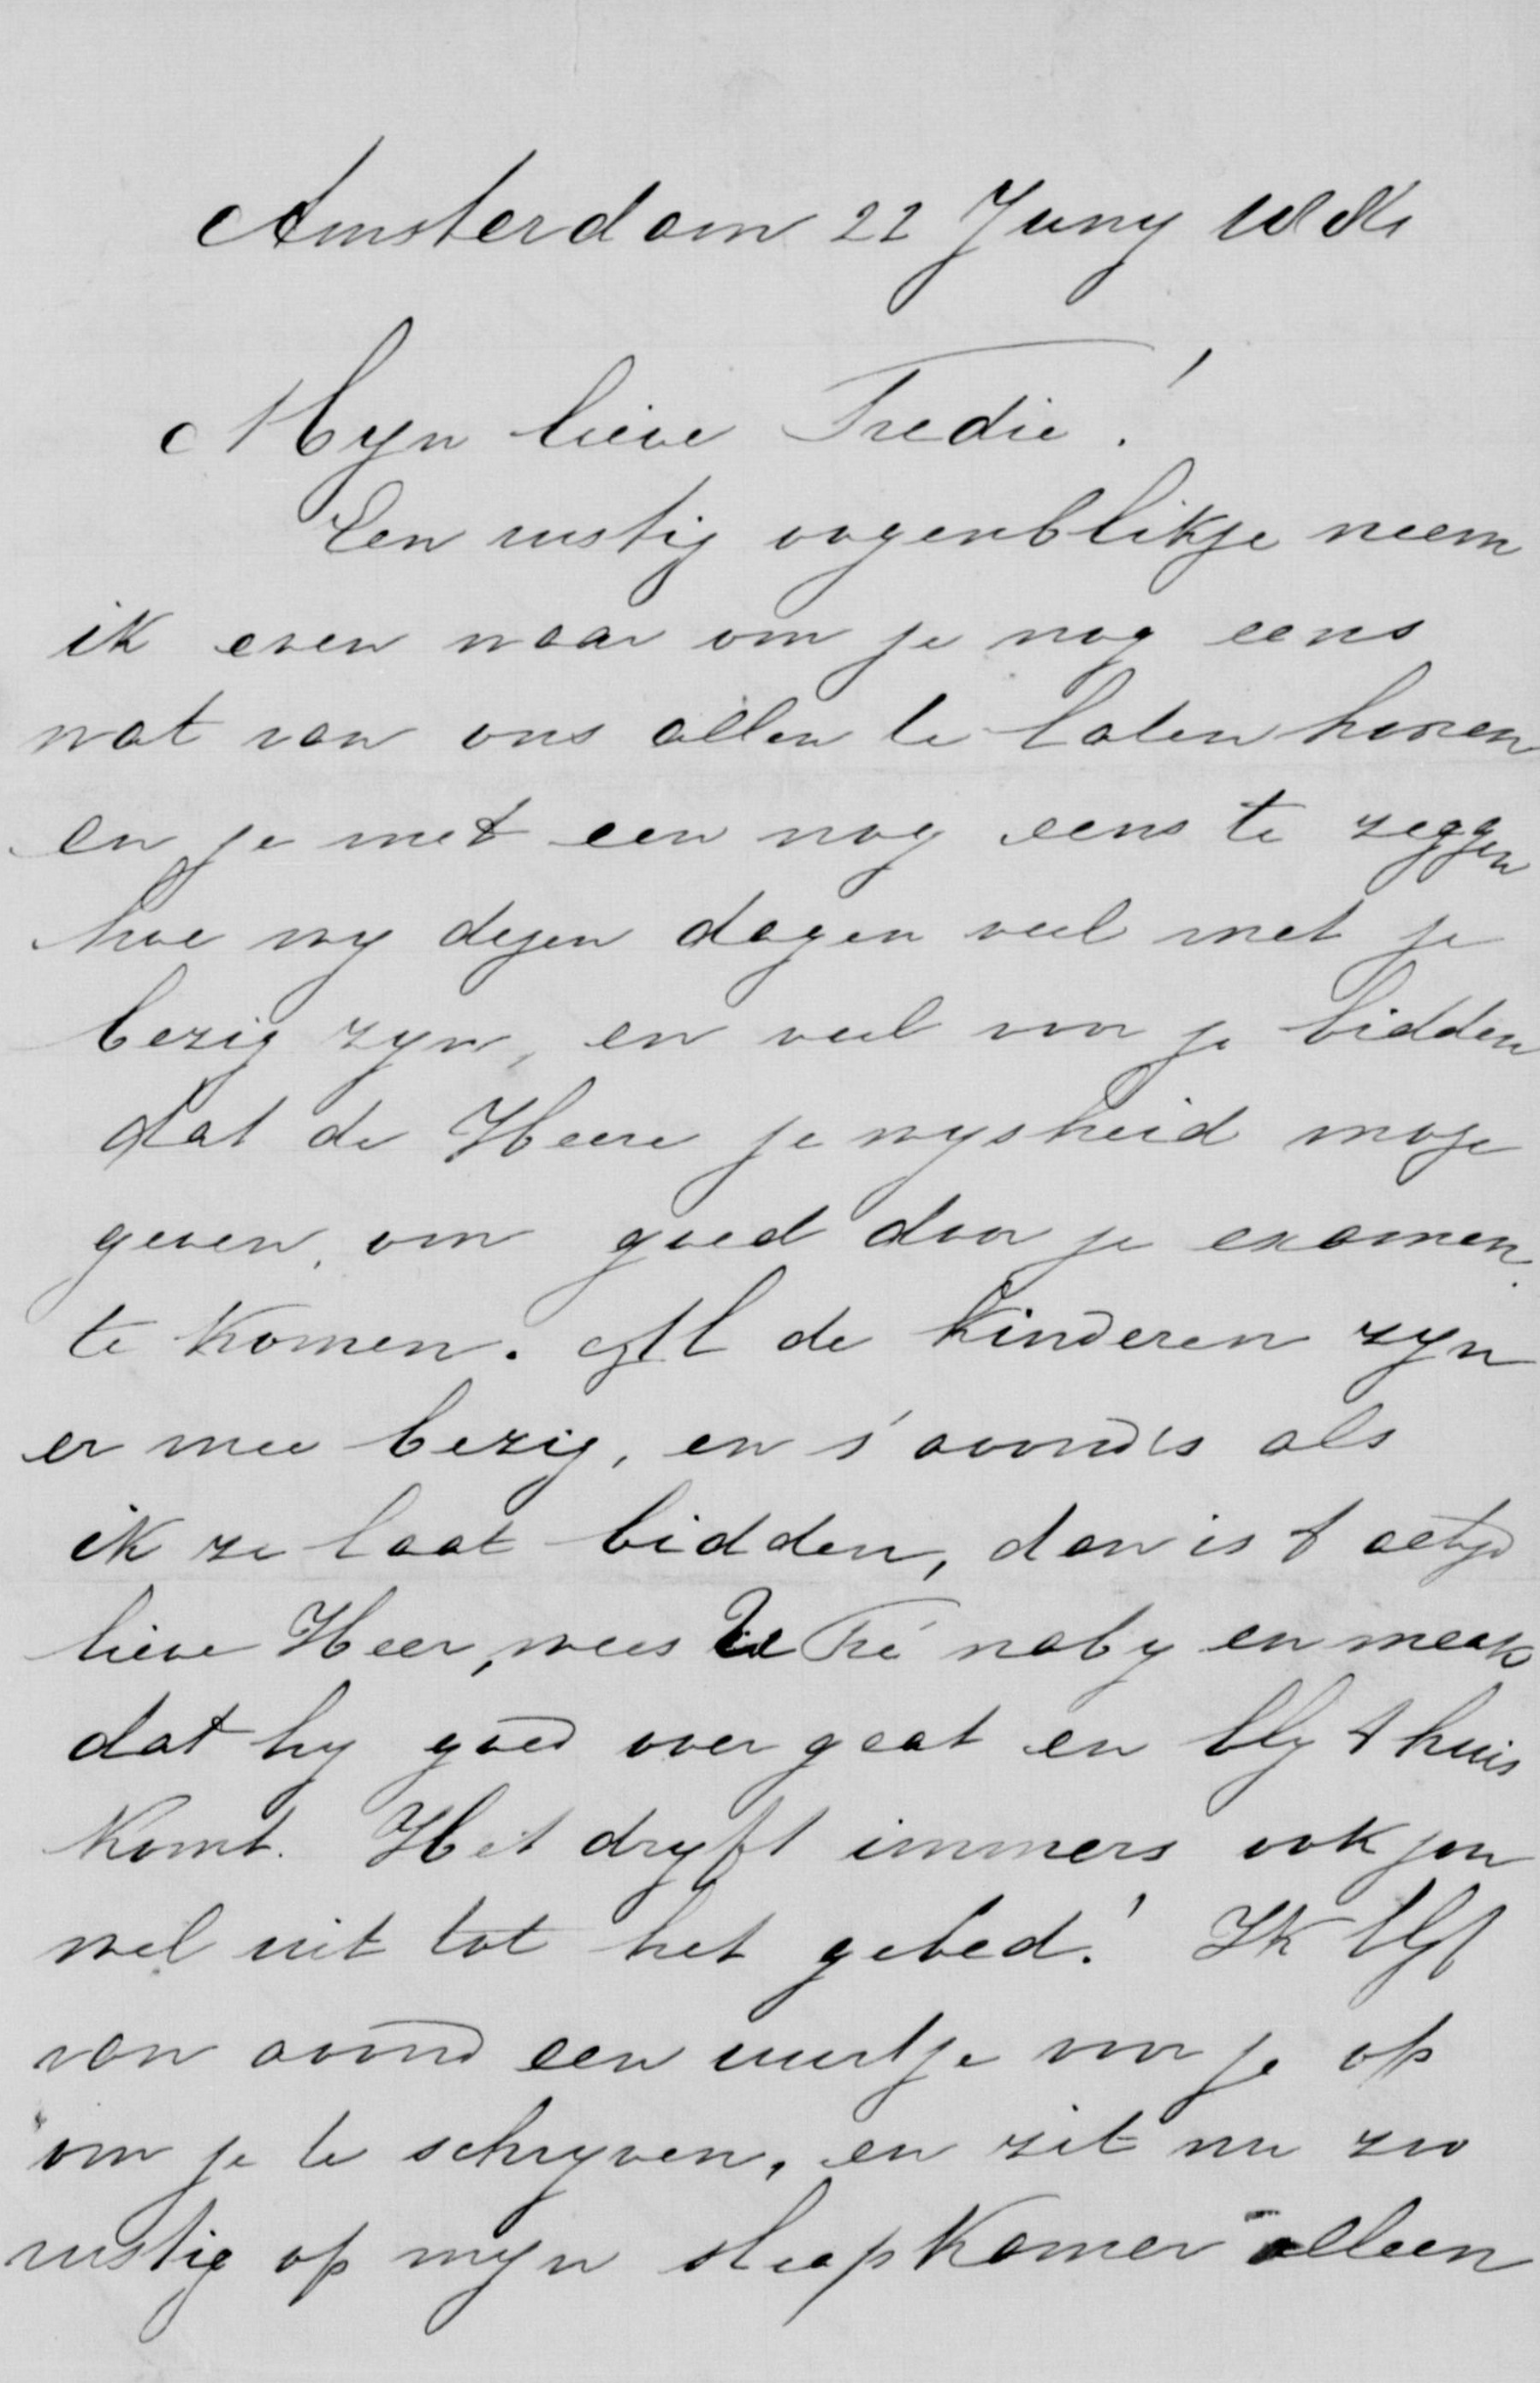 Amsterdam 22 Juny
Myn lieve Fredie!
Een rustig oogenblikje neem
ik even waar om je nog eens
wat van ons allen te laten hooren
en je met een nog eens te zeggen
hoe wy dezen dagen veel met je
bezig zyn, en veel voor je bidden
dat de Heere je wysheid moge
geven, om goed door je examen
te komen. Al de kinderen zyn
er mee bezig, en s'avonds als
ik ze laat bidden, dan is t altyd
lieve Heer, wees Fré naby en maak
dat hy goed over gaat en bly t huis
komt. Het dryft immers ook jou
wel uit tot het gebed! Ik blyf
van avond een uurtje voor je op
om je te schryven, en zit nu zoo
rustig op myn slaapkamer alleen